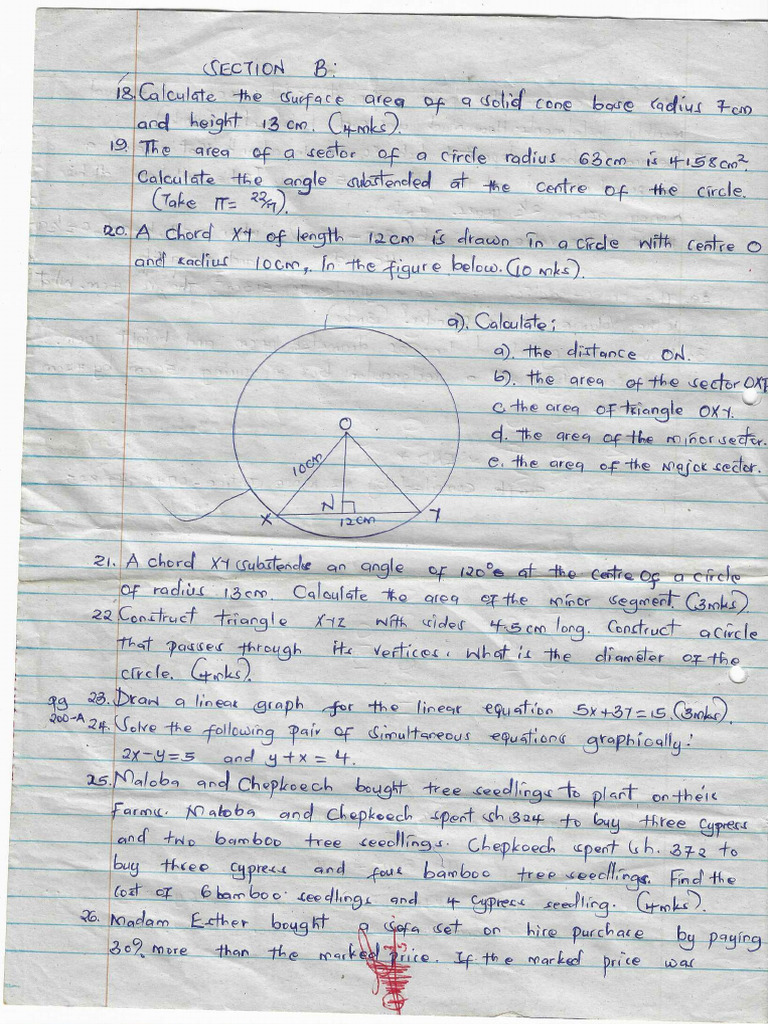 SECTION B:
18. Calculate the surface area of a solid cone base radius 7cm
and height 13 cm. (4mks).
19. The area of a sector of a circle radius 63cm is 4158cm².
Calculate the angle substended at the centre of the circle.
(Take π = 22/7).
20. A chord XY of length 12cm is drawn in a circle with centre O
and radius 10cm, in the figure below. (10 mks).
a). Calculate;
a). the distance ON.
b). the area of the sector OXY
c. the area of triangle OXY.
d. the area of the minor sector.
e. the area of the Major sector.
O
10cm
N
X
12cm
Y
21. A chord XY substends an angle of 120° at the centre of a circle
of radius 13cm. Calculate the area of the minor segment. (3mks)
22. Construct triangle XYZ with sides 4.5cm long. Construct a circle
that passes through its vertices. What is the diameter of the
circle. (4mks).
pg 23. Draw a linear graph for the linear equation 5x+3y=15. (3mks).
200-A 24. Solve the following pair of simultaneous equations graphically:
2x-y=5 and y+x=4.
25. Maloba and Chepkoech bought tree seedlings to plant on their
Farms. Maloba and Chepkoech spent sh 324 to buy three cypress
and two bamboo tree seedlings. Chepkoech spent sh. 372 to
buy three cypress and four bamboo tree seedlings. Find the
cost of 6 bamboo seedlings and 4 cypress seedling. (4mks).
26. Madam Esther bought a sofa set on hire purchase by paying
30% more than the marked price. If the marked price was